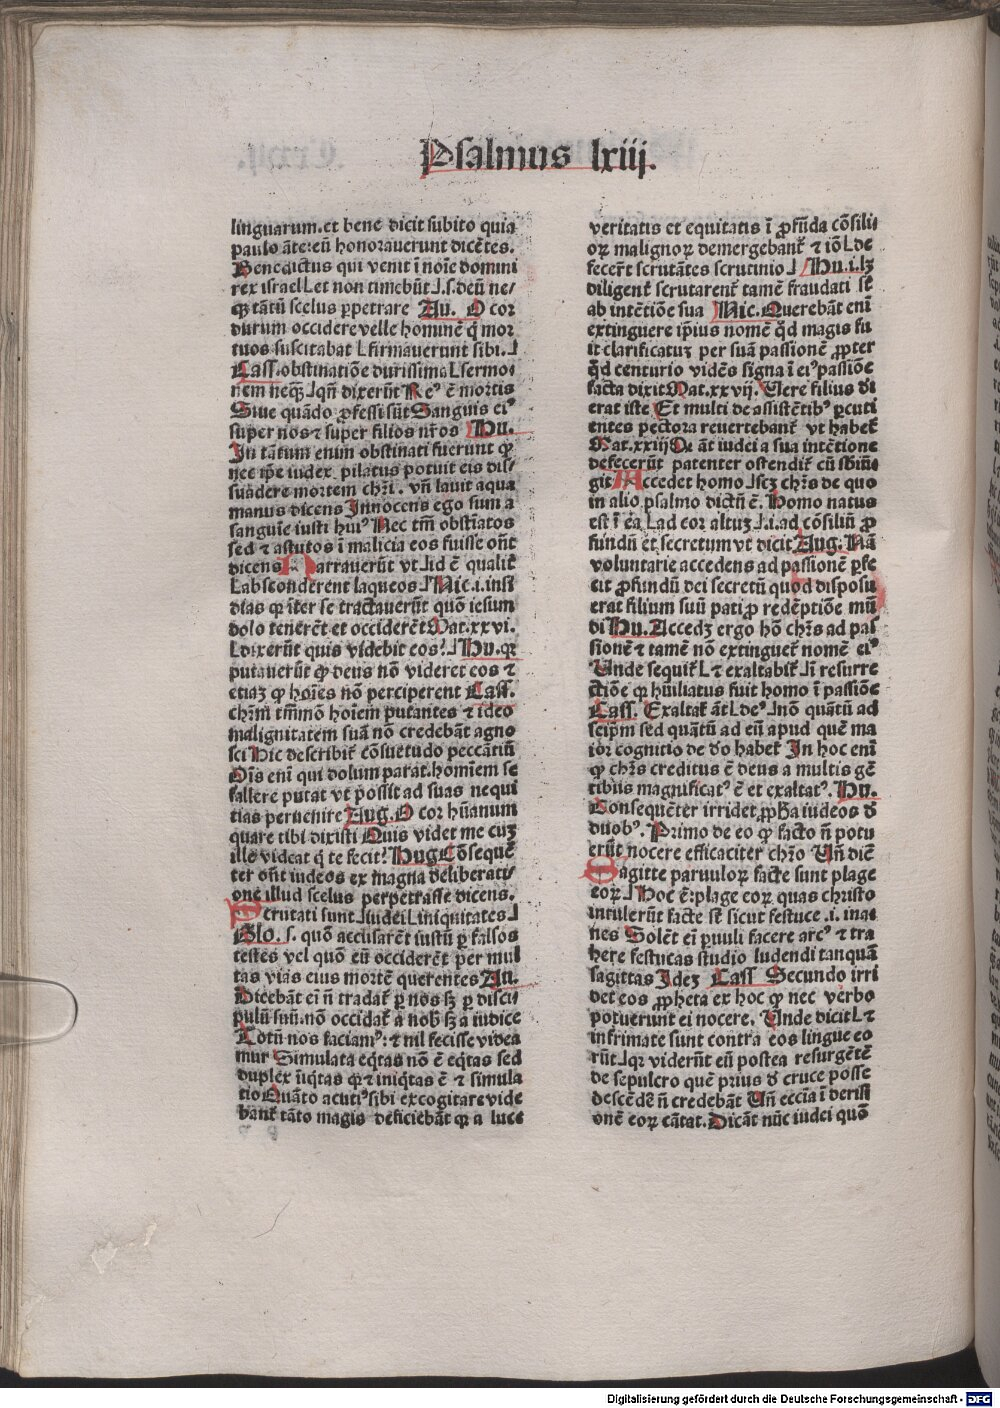 Psalmus lxiij.
linguarum.et bene dicit subito quia
paulo ãte:eũ honorauerunt dicẽtes.
Benedictus qui venit ĩ noĩe domini
rex israel et non timebũt .s.deũ ne/
qꝫ tãtũ scelus ꝑpetrare Au. O cor
durum occidere velle hominẽ q̇ mor
tuos suscitabat firmauerunt sibi.
Cass.obstinatiõe durissima sermo⸗
nem neqꝫ qñ dixerũt Reꝰ ẽ mortis
Siue quãdo ꝓfessi sũt Sanguis eiꝰ
super nos ⁊ super filios nr̃os Hu.
In tãtum enim obstinati fuerunt ꝙ
nec ip̃e iudex pilatus potuit eis dis/
suadere mortem chr̃i. vñ lauit aqua
manus dicens Innocens ego sum a
sanguĩe iusti huiꝰ Nec tm̃ obstĩatos
sed ⁊ astutos ĩ malicia eos fuisse oñt
dicens Narrauerũt vt id ẽ qualit̃
absconderent laqueos Nic.i.insi
dias qꝛ ĩter se tractauerũt quõ iesum
dolo tenerẽt et occiderẽt Mat.xxvi.
dixerũt quis videbit eos? Hu.qꝛ
putauerũt ꝙ deus nõ videret eos ⁊
etiaꝫ ꝙ hoĩes nõ perciperent Cass.
chr̃m tm̃mõ hoĩem putantes ⁊ ideo
malignitatem suã nõ credebãt agno
sci Hic describit̃ cõsuetudo peccãtiũ
Oĩs enĩ qui dolum parat.hominẽ se
fallere putat vt possit ad suas nequi
tias peruenire Aug. O cor hũanum
quare tibi dixisti Quis videt me cuꝫ
ille videat q̇ te fecit? Hug Cõsequẽ
ter oñt iudeos ex magna deliberati/
one illud scelus perpetrasse dicens.
Scrutati sunt iudei iniquitates
Glo. s. quõ accusarẽt iustũ ꝑ falsos
testes vel quõ eũ occiderẽt per mul
tas vias eius mortẽ querentes Au.
Dicebãt ei ñ tradat̃ ꝑ nos sꝫ ꝑ disci/
pulũ suũ.nõ occidat̃ a nob̃ sꝫ a iudice
Totũ nos faciamꝰ: ⁊ nil fecisse videa
mur Simulata eq̃tas nõ ẽ eq̃tas sed
duplex ĩiq̃tas qꝛ ⁊ iniq̃tas ẽ ⁊ simula
tio Quãto acutiꝰ sibi excogitare vide
bant̃ tãto magis deficiebãt qꝛ a luce
veritatis et equitatis ĩ ꝓfũda cõsili
oꝝ malignoꝝ demergebant̃ ⁊ iõ de
fecer̃t scrutãtes scrutinio Hu.i.lꝫ
diligent̃ scrutarent̃ tamẽ fraudati st̃
ab intẽtiõe sua Nic. Querebãt enĩ
extinguere ip̃ius nomẽ q̇d magis fu
it clarificatuꝫ per suã passionẽ ꝓpter
q̇d centurio vidẽs signa ĩ eiꝰ passiõe
facta dixit Mat.xxvij. Uere filius di
erat iste Et multi de assistẽtibꝰ ꝑcuti
entes pectora reuertebant̃ vt habet̃
Mat.xxiij De ãt iudei a sua intẽtione
defecerũt patenter ostendit̃ cũ
git Accedet homo scꝫ chr̃s de quo
in alio psalmo dictũ ẽ. Homo natus
est ĩ ea ad cor altuꝫ .i.ad cõsiliũ ꝓ
fundũ et secretum vt dicit Aug. Nã
voluntarie accedens ad passionẽ ꝑfe
cit ꝓfundũ dei secretũ quod disposu
erat filium suũ pati ꝓ redẽptiõe mũ
di Hu. Accedꝫ ergo hõ chr̃s ad pas
sionẽ ⁊ tamẽ nõ extinguet̃ nomẽ eiꝰ
Unde sequit̃ ⁊ exaltabit̃ ĩ resurre
ctiõe qꝛ hũiliatus fuit homo ĩ passiõe
Cass. Exaltat̃ ãt deꝰ nõ quãtũ ad
seip̃m sed quãtũ ad eũ apud quẽ ma
ior cognitio de deo habet̃ In hoc enĩ
ꝙ chr̃s creditus ẽ deus a multis gẽ
tibus magnificatꝰ ẽ et exaltatꝰ. Hu.
Consequẽter irridet ꝓpħa iudeos d̃
duobꝰ. Primo de eo ꝙ facto ñ potu
erũt nocere efficaciter chr̃o Uñ dicẽ
Sagitte paruuloꝝ facte sunt plage
eoꝝ Hoc ẽ:plage eoꝝ quas christo
intulerũt facte st̃ sicut festuce .i. ina⸗
nes Solẽt ei ꝑuuli facere arcꝰ ⁊ tra
here festucas studio ludendi tanquã
sagittas Ideꝫ Cass Secundo irri
det eos ꝓpheta ex hoc ꝙ nec verbo
potuerunt ei nocere. Unde dicit ⁊
infirmate sunt contra eos lingue eo
rũt qꝛ viderũt eũ postea resurgẽtẽ
de sepulcro quẽ prius d̃ cruce posse
descẽdẽ ñ credebãt Uñ eccĩa ĩ derisi
onẽ eoꝝ cãtat. Dicãt nũc iudei quõ
Digitalisierung gefördert durch die Deutsche Forschungsgemeinschaft - DFG